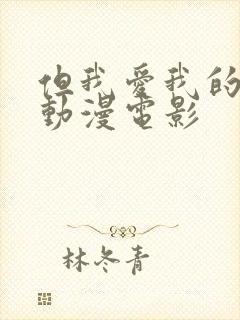 但我爱我的
動漫電影
林冬青